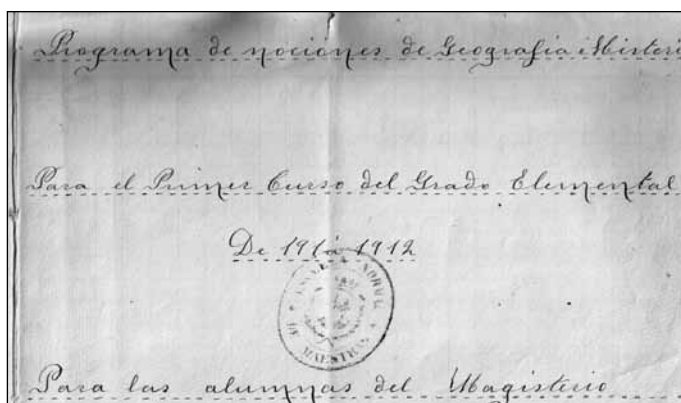 Programa de nociones de Geografía é Histori
Para el Primer Curso del Grado Elemental
De 191á 1912
NORMAL
DE MAESTRAS
Para las alumnas del Magisterio